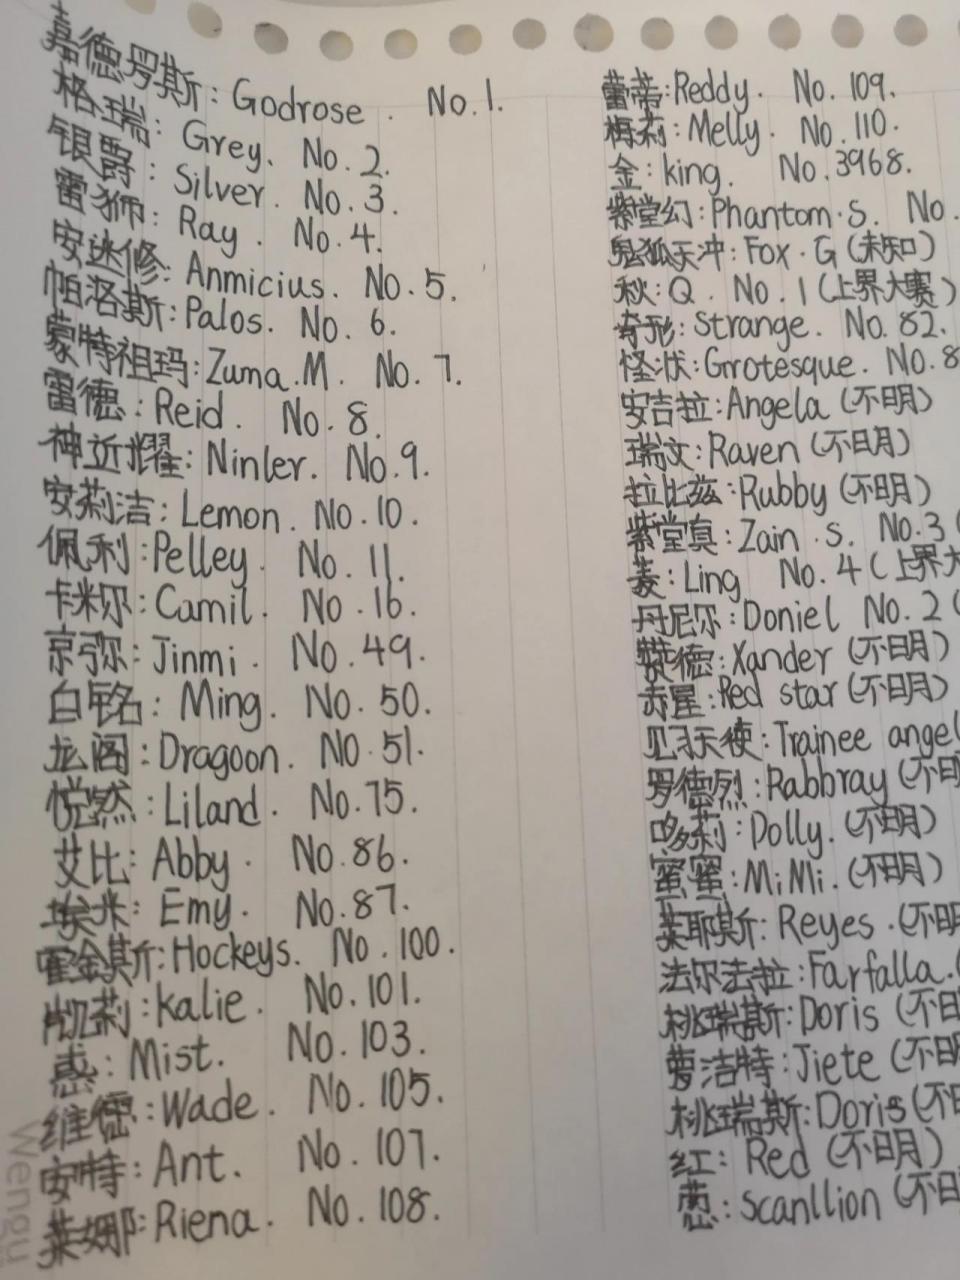 嘉德罗斯: Godrose. No.1.
格瑞: Grey. No.2.
银爵: Silver. No.3.
雷狮: Ray. No.4.
安迷修: Anmicius. No.5.
帕洛斯: Palos. No.6.
蒙特祖玛: Zuma.M. No.7.
雷德: Reid. No.8.
神近耀: Ninler. No.9.
安莉洁: Lemon. No.10.
佩利: Pelley. No.11.
卡米尔: Camil. No.16.
京弥: Jinmi. No.49.
白铭: Ming. No.50.
龙阁: Dragoon. NO.51.
悦然: Liland. No.75.
艾比: Abby. No.86.
埃米: Emy. No.87.
霍金斯: Hockeys. No.100.
凯莉: Kalie. No.101.
惑: Mist. No.103.
维德: Wade. No.105.
安特: Ant. No.107.
莱娜: Riena. No.108.
蕾蒂: Reddy. No.109.
梅莉: Melly. No.110.
金: king. No.3968.
紫堂幻: Phantom.S. No.
鬼狐天冲: Fox.G (未知)
秋: Q. No.1 (上界大赛)
奇形: Strange. No.82.
怪状: Grotesque. NO.8
安吉拉: Angela (不明)
瑞文: Raven (不明)
拉比兹: Rubby (不明)
紫堂真: Zain.s. No.3 (
菱: Ling No.4 (上界大
丹尼尔: Doniel No.2 (
赞德: Xander (不明)
赤星: Red star (不明)
见习天使: Trainee angel
罗德烈: Rabbray (不明
哆莉: Dolly. (不明)
蜜蜜: MiMi. (不明)
莱耶斯: Reyes. (不明
法尔法拉: Farfalla. (
桃瑞斯: Doris (不明
萝洁特: Jiete (不明
桃瑞斯: Doris (不明
红: Red (不明)
葱: scanllion (不明
Wengu